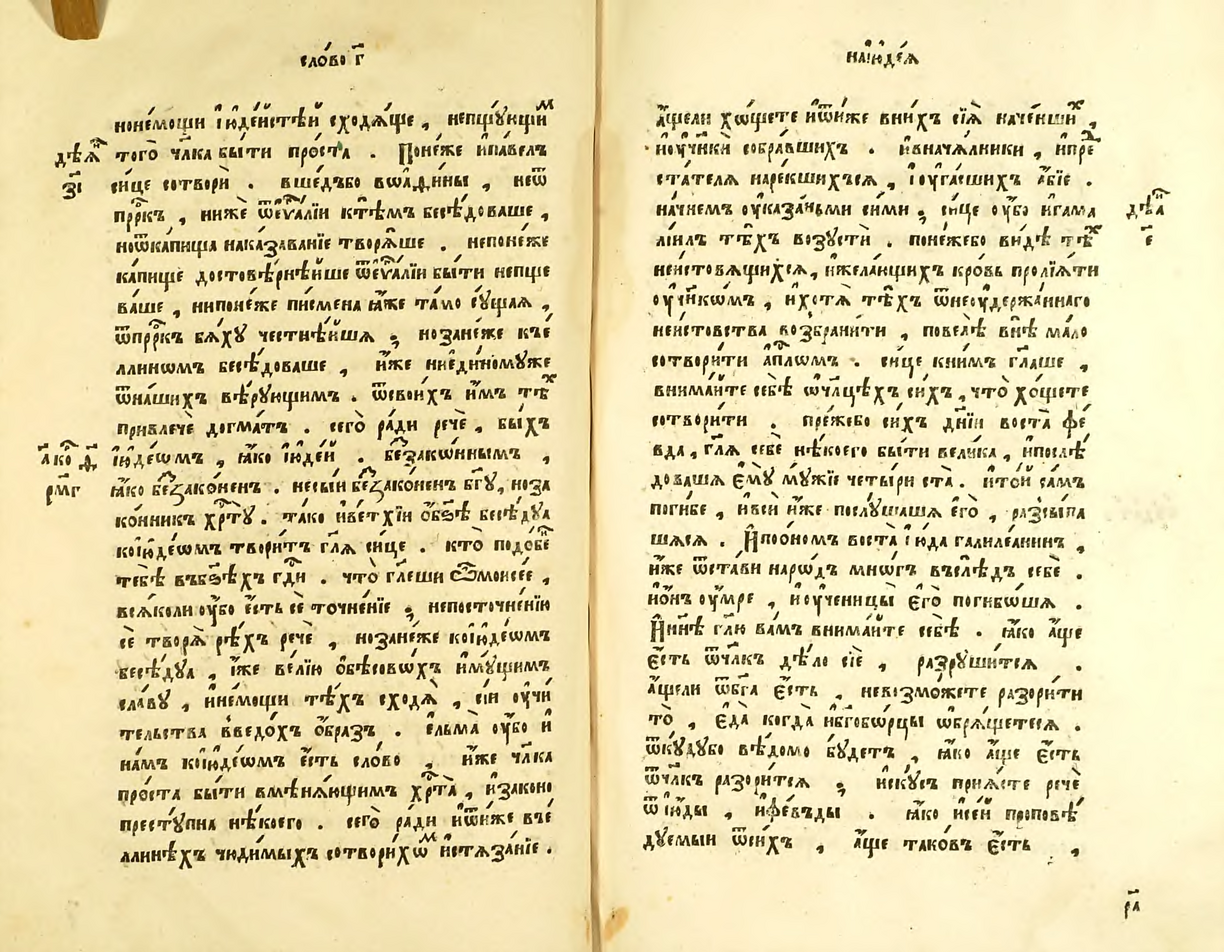 сло́во г҃
нонемощи і҆юде́йстѣй сходѧ́ще , непщꙋющи м
дѣѧ҃
того̀ чл҃ка бы́ти про́ста . Поне́же и҆па́велъ
з҃і
си́це сотворѝ . вше́дъбо воа҆ѳи́ны , неѿ
прⷪ҇ркъ , нижѐ ѿеѵⷢ҇а́лїи ктѣ́мъ бесѣ́доваше ,
ноѿка́пища наказа́ванїе творѧ́ше . непоне́же
ка́пище достовѣ́рнѣйше ѿеѵⷢ҇а́лїи бы́ти непще
ва́ше , нипоне́же пи́смена ꙗ҆́же та́мо сꙋ́щаѧ ,
ѿпрⷪ҇ркъ бѧ́хꙋ честнѣ́йшѧ ; нозане́же кѣе
ллиномъ бесѣ́доваше , и҆́же ниеди́номꙋже
ѿна́шихъ вѣ́рꙋющимъ . ѿсвои́хъ и҆́мъ тѣ х
привлечѐ догма́тъ . сего̀ ра́ди речѐ , бы́хъ
а҆ко д҃
і҆юде́ѡмъ , ꙗ҆́ко і҆юде́й . беззако́ннымъ ,
рм҃г
ꙗ҆́ко беззако́ненъ . несы́й беззако́ненъ бг҃ꙋ , ноза
ко́нникъ хрⷭ҇тꙋ̀ . та́ко и҆ве́тхїй ѻ҆бо́ѣ бесѣ́дꙋѧ
коі҆юде́ѡмъ твори́тъ гл҃ѧ си́це . кто̀ подо́бе
тебѣ̀ въбо́ѕѣхъ гдⷭ҇и . что̀ гл҃еши ѽмоисе́е ,
всѧ́коли ᲂу҆́бо є҆́сть сѐ точне́нїе ; непосточне́нїю
сѐ творѧ̀ рѣ́хъ речѐ , нозане́же коі҆юде́ѡмъ
бесѣ́дꙋѧ , и҆́же ве́лїю ѻ҆бѣсово́хъ и҆мꙋ́щимъ
сла́вꙋ , и҆не́мощи тѣ́хъ сходѧ̀ , сїй ᲂу҆чи
тельства введо́хъ ѻ҆́бразъ . є҆льма̀ ᲂу҆́бо и҆
на́мъ коі҆юде́ѡмъ є҆́сть сло́во , и҆́же чл҃ка
про́ста бы́ти вмѣнѧ́ющимъ хрⷭ҇та̀ , и҆законо
престꙋ́пна нѣ́коего . сего̀ ра́ди и҆ѿни́же въе
ллинѣхъ чюди́мыхъ сотвори́хѡ м и҆стѧза́нїе .
наі҆юде́ѧ
а҆́щели хо́щете и҆ѿни́же вни́хъ сїѧ̀ наче́нши х ,
и҆ᲂу҆чн҃ики собра́вшихъ . и҆внача́лники , и҆пре
ста́телѧ наре́кшихъсѧ , і҆ᲂуга́сшихъ а҆́бїе .
на́чнемъ ᲂу҆каза́ньми си́ми ; си́це ᲂу҆́бо и҆гама
дѣѧ҃
лїи́лъ тѣ́хъ возꙋстѝ . поне́жебо ви́дѣ тѣ х
е҃
неи́стовѧщихсѧ , и҆жела́ющихъ кро́вь пролїѧ́ти
ᲂу҆чн҃ико́мъ , и҆хотѧ̀ тѣ́хъ ѿнеᲂу҆держа́ннаго
неи́стовства возбрани́ти , повелѣ̀ внѣ̀ ма́ло
сотвори́ти а҆пⷭ҇лѡмъ . си́це кни́мъ гл҃аше ,
внима́йте себѣ̀ ѡ҆чл҃цѣхъ си́хъ , что̀ хо́щете
сотвори́ти . пре́жебо си́хъ дн҃їй воста̀ ѳе
вда , гл҃ѧ себѐ нѣ́коего бы́ти вели́ка , и҆послѣ́
доваша є҆мꙋ̀ мꙋ́жїе четы́ри ста . и҆то́й са́мъ
поги́бе , и҆всѝ и҆́же послꙋ́шаша є҆го̀ , разсы́па
шасѧ . И҆поо́номъ воста̀ і҆ю́да галиле́анинъ ,
и҆́же ѿста́ви наро́дъ мно́гъ въслѣ́дъ себѐ .
и҆о́нъ ᲂу҆́мре , и҆ᲂу҆ченицы̀ є҆го̀ поги́бѡша .
И҆нн҃ѣ гл҃ю ва́мъ внима́йте себѣ̀ . ꙗ҆́ко а҆́ще
є҆́сть ѿчл҃къ дѣ́ло сїѐ , разрꙋши́тсѧ .
а҆́щели ѿбг҃а є҆́сть , невозмо́жете разори́ти
то̀ , є҆да̀ когда̀ и҆бг҃обо́рцы ѡ҆брѧ́щетесѧ .
ѿкꙋ́дꙋбо вѣ́домо бꙋ́детъ , ꙗ҆́ко а҆́ще є҆́сть
ѿчл҃къ разори́тсѧ ; и҆скꙋ́съ прїи́мете речѐ
ѿі҆ю́ды , и҆ѳе́въды . ꙗ҆́ко и҆се́й проповѣ́
дꙋемый ѿси́хъ , а҆́ще тако́въ є҆́сть ,
р҃а